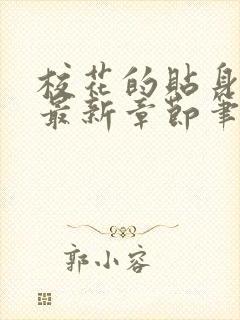 校花的貼身
最新章節筆
郭小容